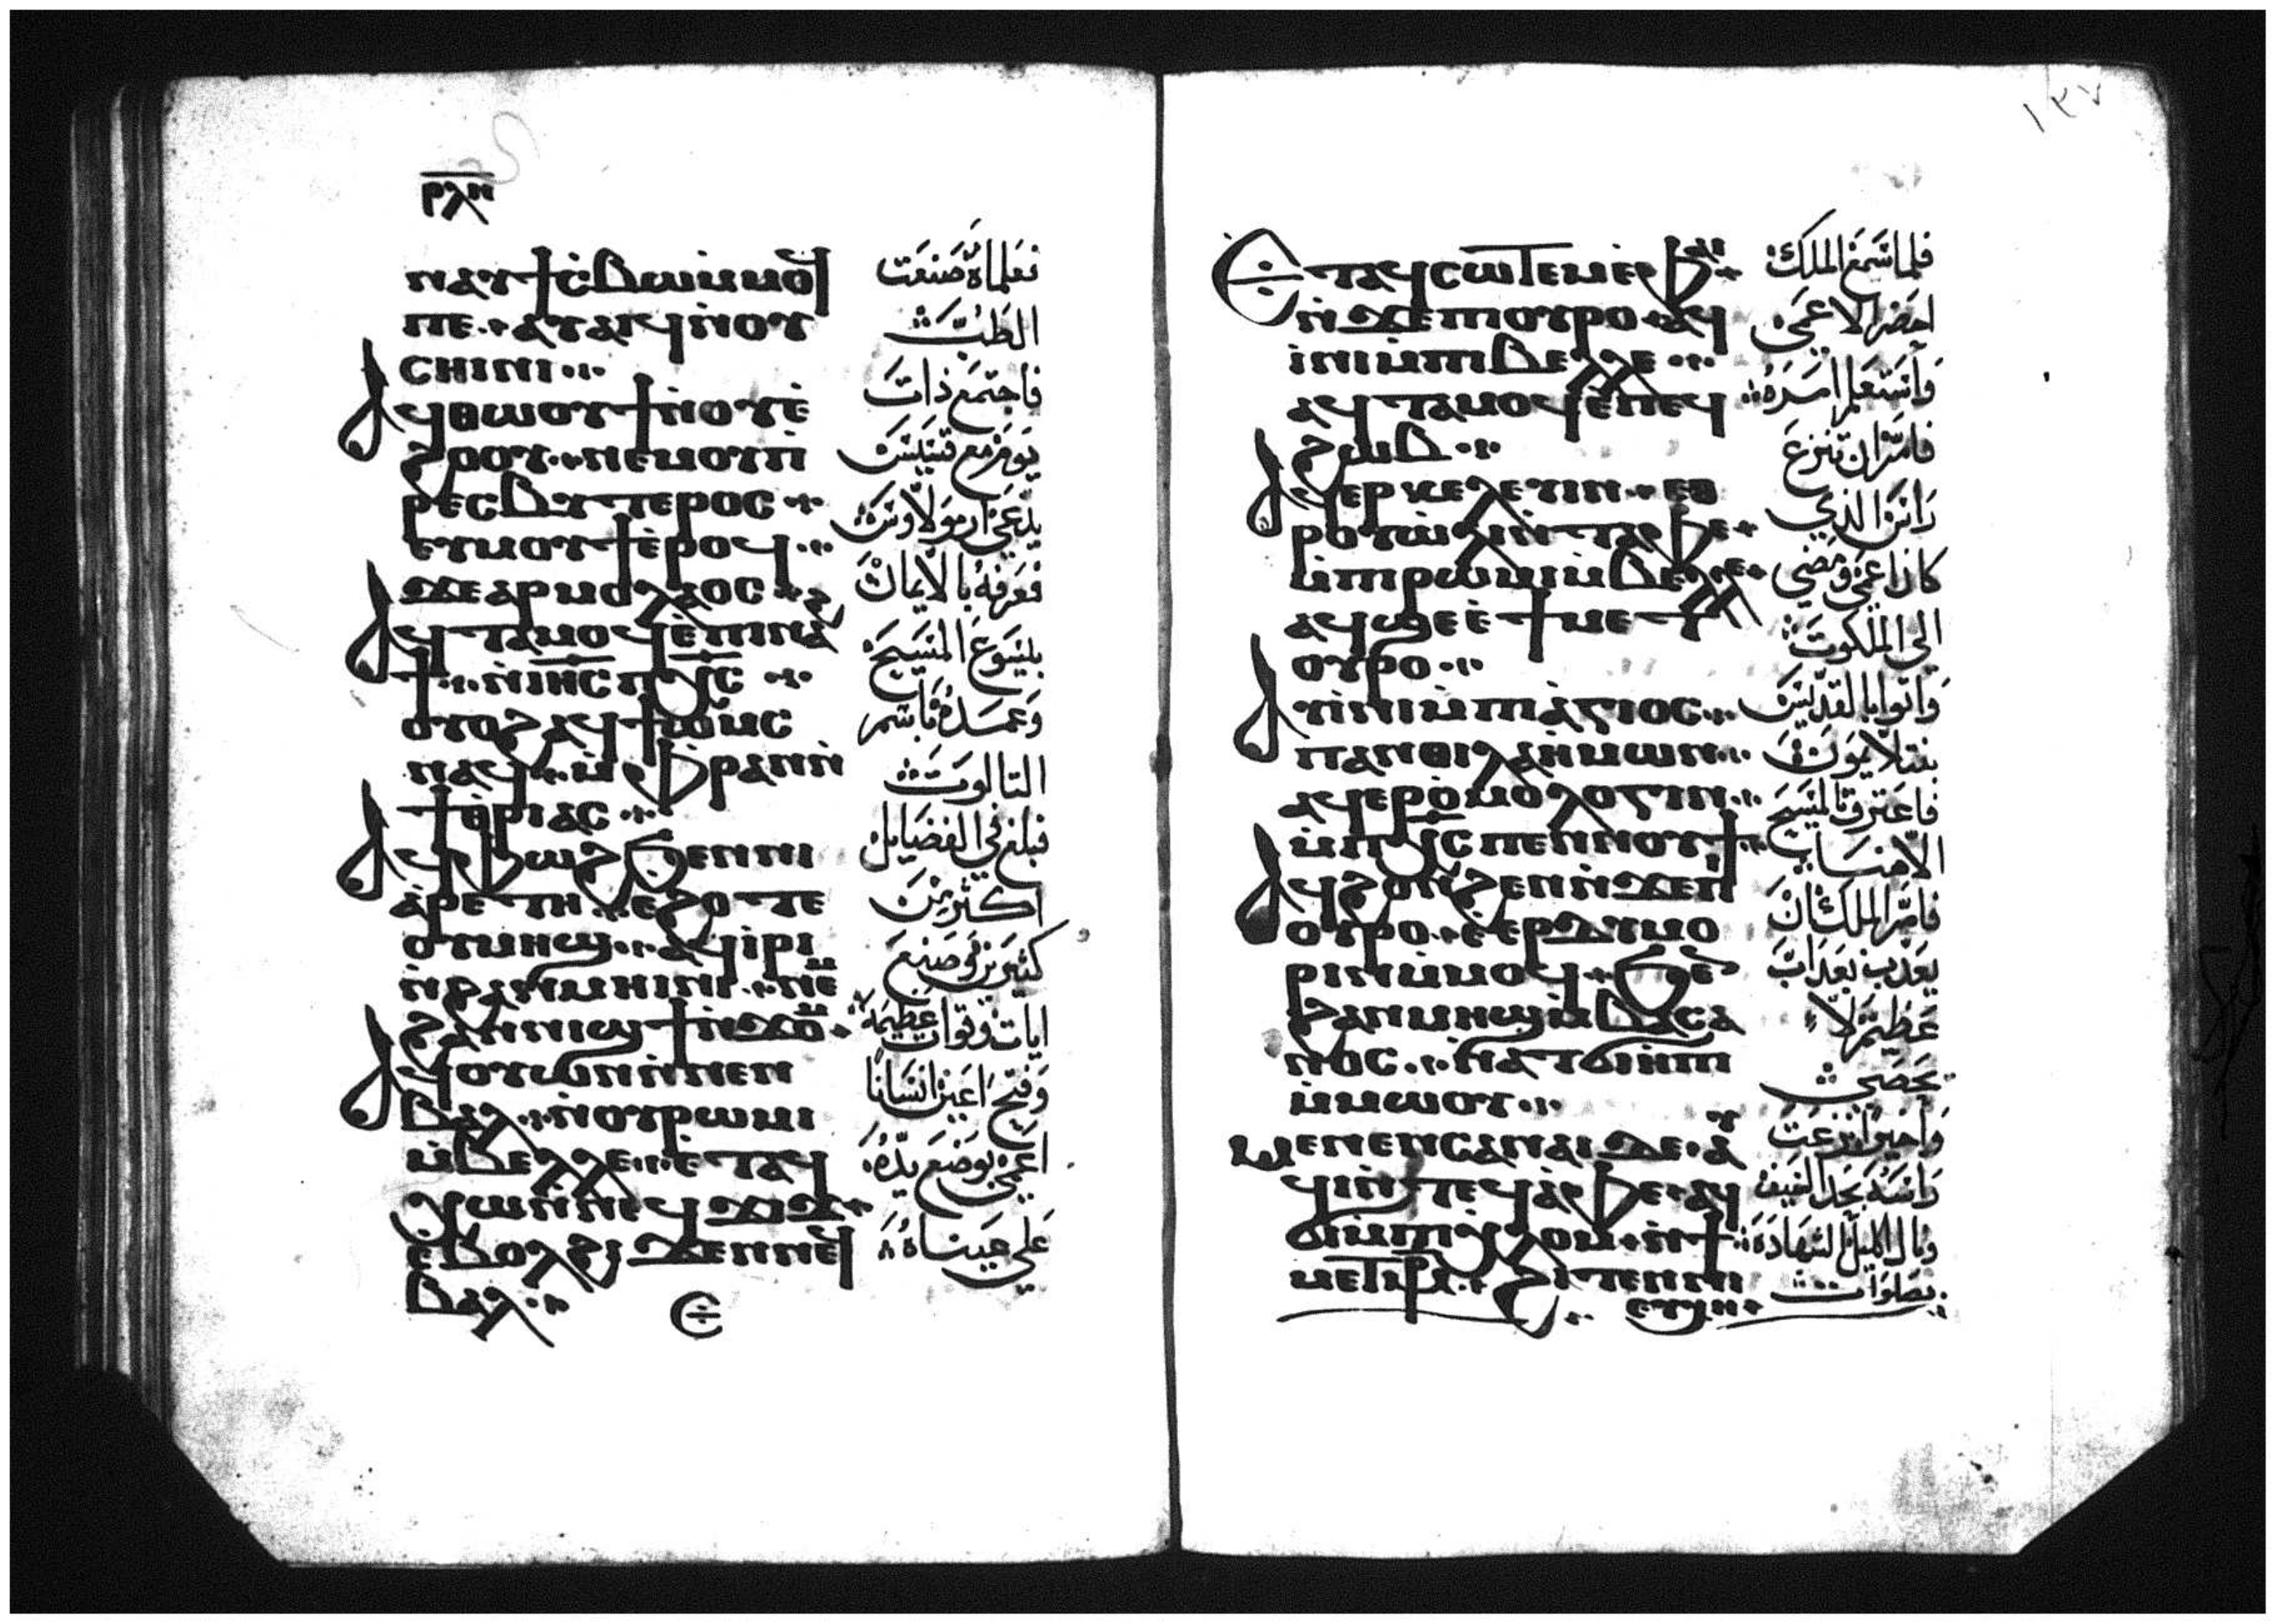 ⲣⲗⲏ
ⲛⲁⲩϯⲥⲃⲱⲙⲙⲟϥ
ⲡⲉ ⲁⲩⲁⲓϥⲛⲟⲩ
ⲥⲏⲓⲛⲓ
ⲁϥⲑⲱⲟⲩϯⲛⲟⲩⲉ
ϩⲟⲟⲩ ⲛⲉⲙⲟⲩⲡ
ⲣⲉⲥⲃⲩⲧⲉⲣⲟⲥ
ⲉⲩⲙⲟⲩϯⲉⲣⲟϥ
ϫⲉⲁⲣⲙⲟⲗⲁⲟⲥ
ⲁϥⲧⲁⲙⲟϥⲉⲡⲓⲛⲁϩ
ϯ ⲛⲓⲏⲥ ⲡⲭⲥ
ⲟⲩⲟϩⲁϥϯⲱⲙⲥ
ⲛⲁϥ ⲙⲫⲣⲁⲛⲛ
ϯⲧⲣⲓⲁⲥ
ⲁϥⲫⲱϩϧⲉⲛⲛⲓ
ⲁⲣⲉⲧⲏ ⲉϩⲟⲧⲉ
ⲟⲩⲙⲏϣ ⲁϥⲓⲣⲓ
ⲛϩⲁⲛⲙⲏⲓⲛⲓ ⲛⲉⲙ
ϩⲁⲛⲛⲓϣϯⲛϫⲟⲙ
ⲁϥⲟⲩⲱⲛⲛⲛⲉⲛ
ⲃⲁⲗ ⲛⲟⲩⲣⲱⲙⲓ
ⲙⲃⲉⲗⲗⲉ ⲉⲧⲁϥ
ⲭⲱⲛⲛⲉϥϫⲓϫ
ⲉⲃⲟⲗϩⲓϫⲉⲛⲛⲉϥ
ⲃⲁⲗ
ⲉ
فعلماه صنعت
الطب
فاجتمع ذات
يوم مع قسيس
يدعى ارمولاوس
فعرفه بالايمان
بيسوع المسيح
وعمده باسم
التالوت
فبلغ في الفضايل
اكثر من
كثيرين وصنع
ايات وقوات عظيمة
وفتح اعين انسانا
اعمى بوضع يده
على عيناه
١٣٧
ⲉⲧⲁϥⲥⲱⲧⲉⲙⲉⲫⲁⲓ
ⲛϫⲉⲡⲟⲩⲣⲟ ⲁϥ
ⲓⲛⲓⲙⲡⲓⲃⲉⲗⲗⲉ
ⲁϥⲧⲁⲙⲟϥⲉⲡⲉϥ
ϩⲱⲃ
ⲁϥⲉⲣⲕⲉⲗⲉⲩⲓⲛ ⲉⲑ
ⲣⲟⲩⲱⲗⲓⲛⲧⲁⲫⲉ
ⲙⲡⲣⲱⲙⲓⲙⲃⲉⲗⲗⲉ
ⲁϥϣⲉⲉϯⲙⲉⲧ
ⲟⲩⲣⲟ
ⲁⲩⲓⲛⲓⲙⲡⲓⲁⲅⲓⲟⲥ
ⲡⲁⲛⲑⲓⲗⲁⲏⲙⲱⲛ
ⲁϥⲉⲣⲟⲙⲟⲗⲟⲅⲓⲛ
ⲙⲡⲭⲥ ⲡⲉⲛⲛⲟⲩϯ
ⲁϥϩⲟⲛϩⲉⲛⲛϫⲉⲡ
ⲟⲩⲣⲟ ⲉⲉⲣⲇⲩⲙⲟ
ⲣⲓⲛⲙⲙⲟϥ ϧⲉⲛ
ϩⲁⲛⲙⲏϣⲙⲃⲁⲥⲁ
ⲛⲟⲥ ⲛⲁⲧϭⲓⲏⲡⲓ
ⲙⲙⲱⲟⲩ
ⲙⲉⲛⲉⲛⲥⲁⲛⲁⲓ ⲇⲉ ⲁⲩ
ϥⲓⲛⲧⲉϥⲁⲫⲉ ⲁϥ
ϭⲓⲙⲡⲓⲭⲗⲟⲙ ⲛϯ
ⲙⲉⲧⲙⲣ ϩⲓⲧⲉⲛⲛⲓ
ⲉⲩⲭⲏ
فلما سمع الملك
احضر الاعمى
واستعلم امره
فامر ان تنزع
راس الذي
كان اعمى ومضى
الى الملكوت
واتوا بالقديس
بنتلايمون
فاعترف بالمسيح
الاهنا
فامر الملك ان
يعذب بعذاب
عظيم لا
يحصى
واخيرا نزعت
راسه بحد السيف
ونال اكليل الشهادة
بصلوات